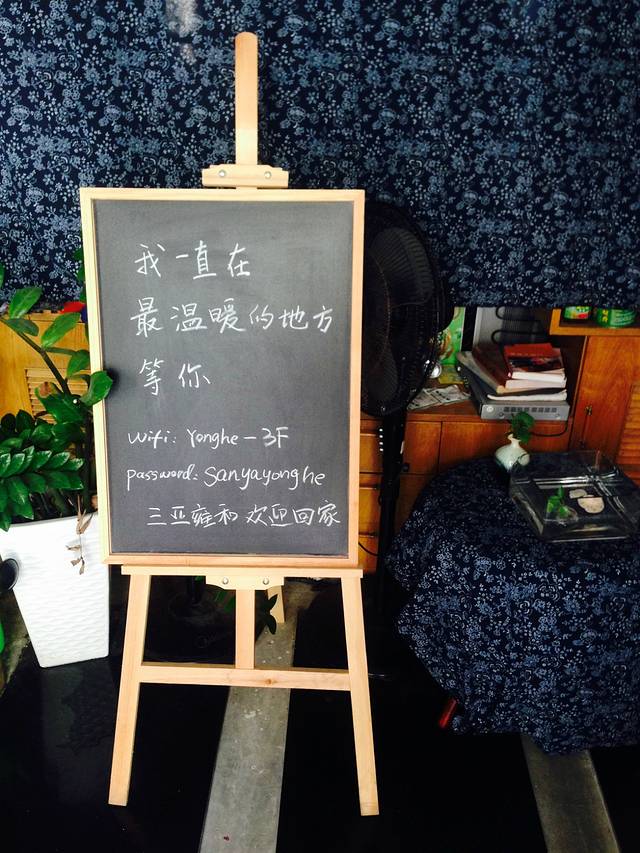 我一直在
最温暖的地方
等你
Wifi: Yonghe-3F
password: Sanyayonghe
三亚雍和 欢迎回家